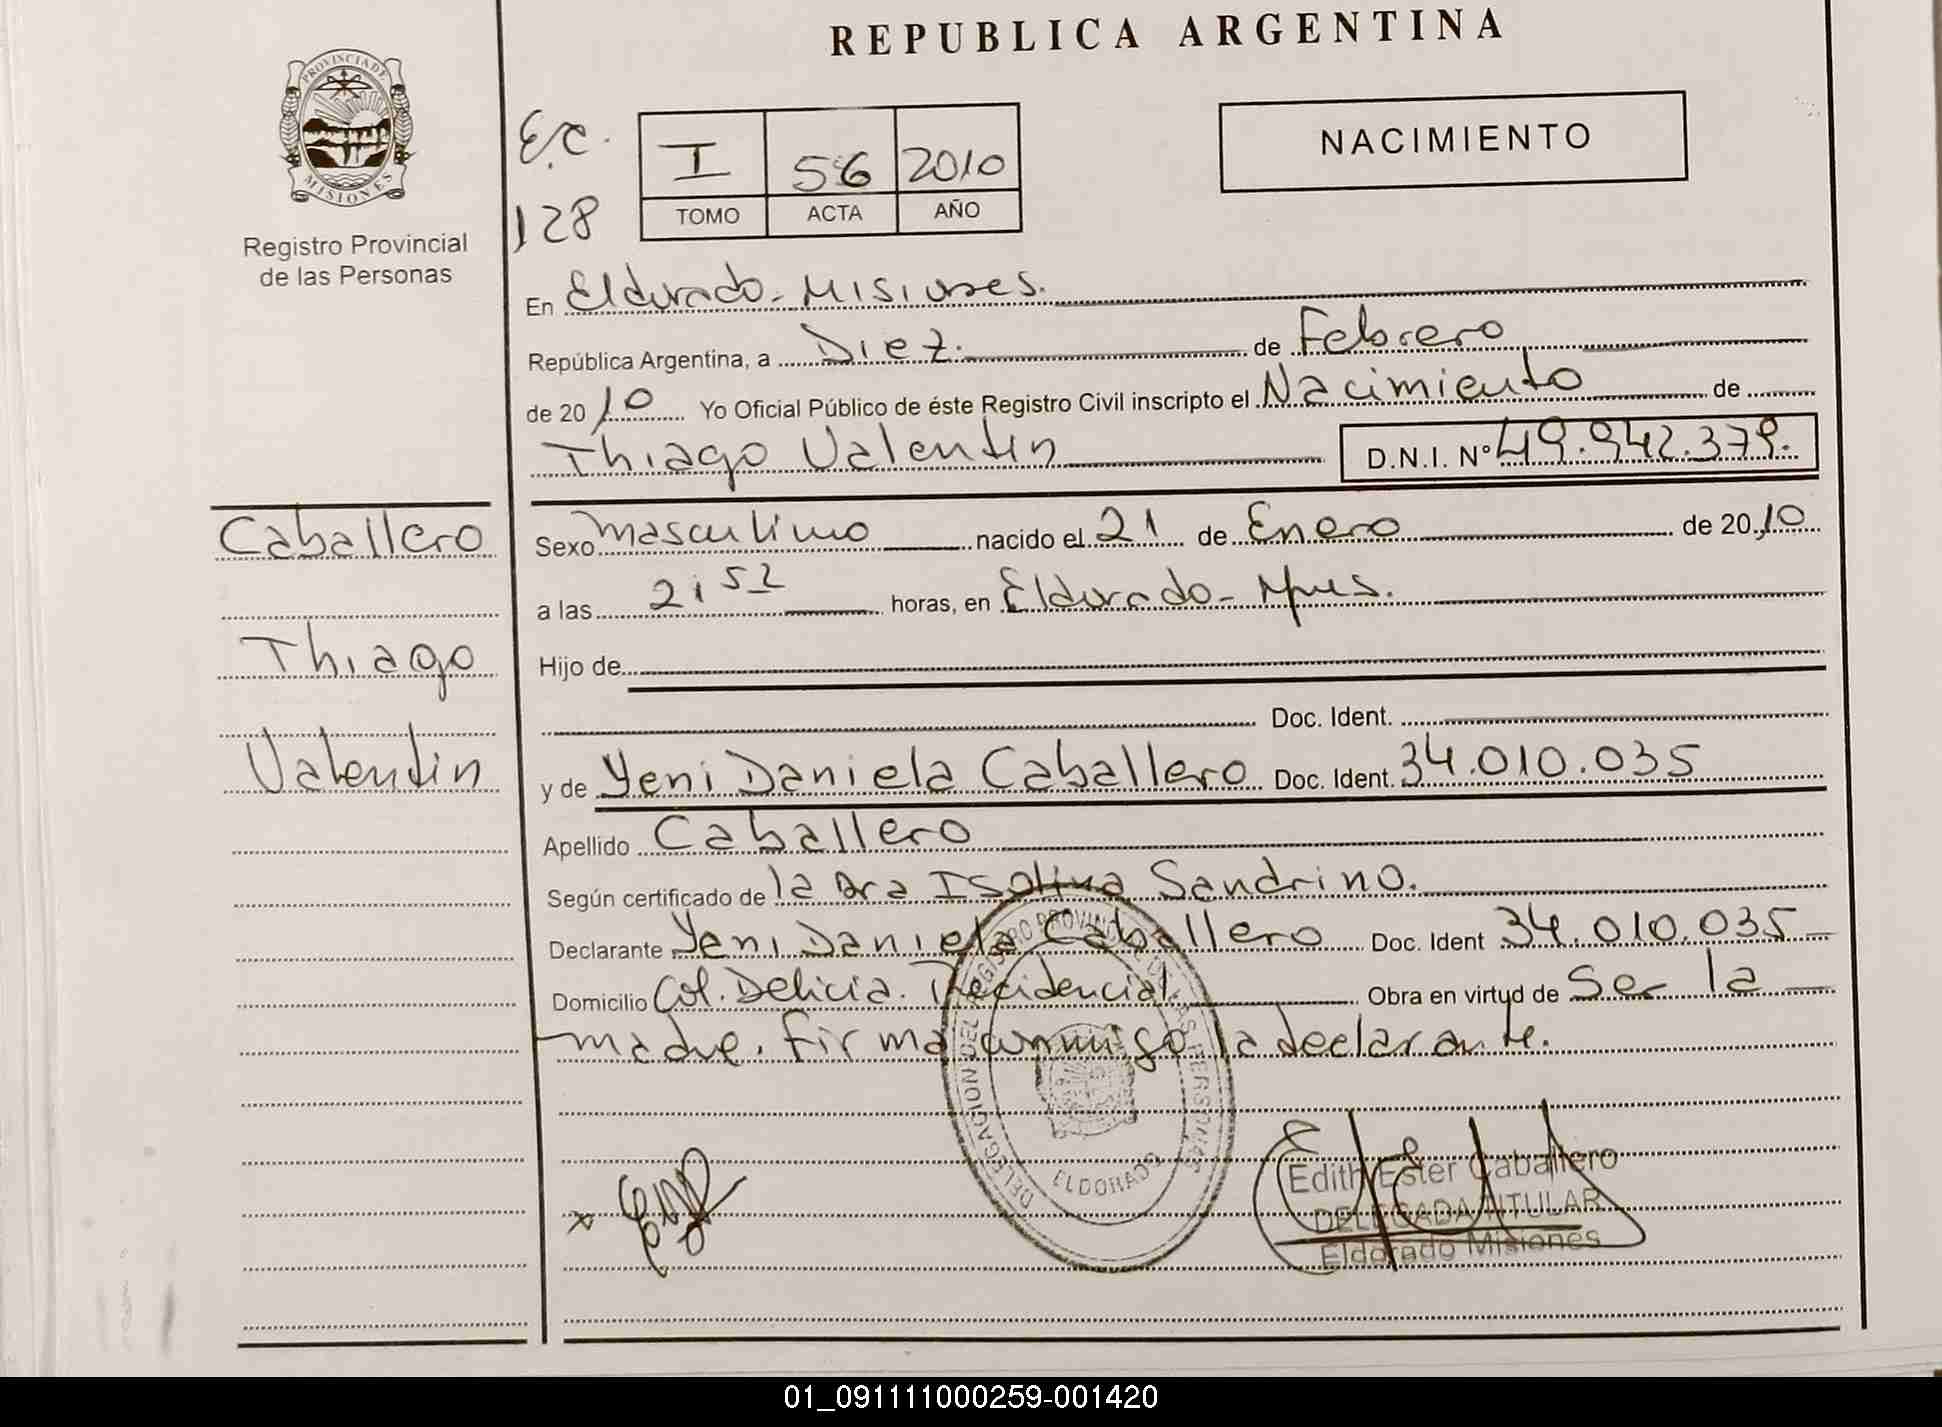 REPUBLICA ARGENTINA
PROVINCIA DE
MISIONES
Registro Provincial
de las Personas
E.C.
128
I 56 2010
TOMO ACTA AÑO
NACIMIENTO
En Eldorado - Misiones.
República Argentina, a Diez. de Febrero
de 2010 Yo Oficial Público de éste Registro Civil inscripto el Nacimiento de
Thiago Valentin D.N.I. Nº 49.942.379.
Caballero
Thiago
Valentin
Sexo masculino nacido el 21 de Enero de 2010
a las horas, en Eldorado - Mnes.
Hijo de
Doc. Ident.
y de Yeni Daniela Caballero Doc. Ident. 34.010.035
Apellido Caballero
Según certificado de la Dra Isolina Sandrino.
Declarante Yeni Daniela Caballero Doc. Ident 34.010.035
Domicilio Col. Delicia. Recidencial. Obra en virtud de Ser la
madre. firma conmigo la declarante.
DELEGACION DEL REGISTRO PROVINCIAL DE LAS PERSONAS
ELDORADO
Edith Ester Caballero
DELEGADA TITULAR
Eldorado Misiones
01_091111000259-001420